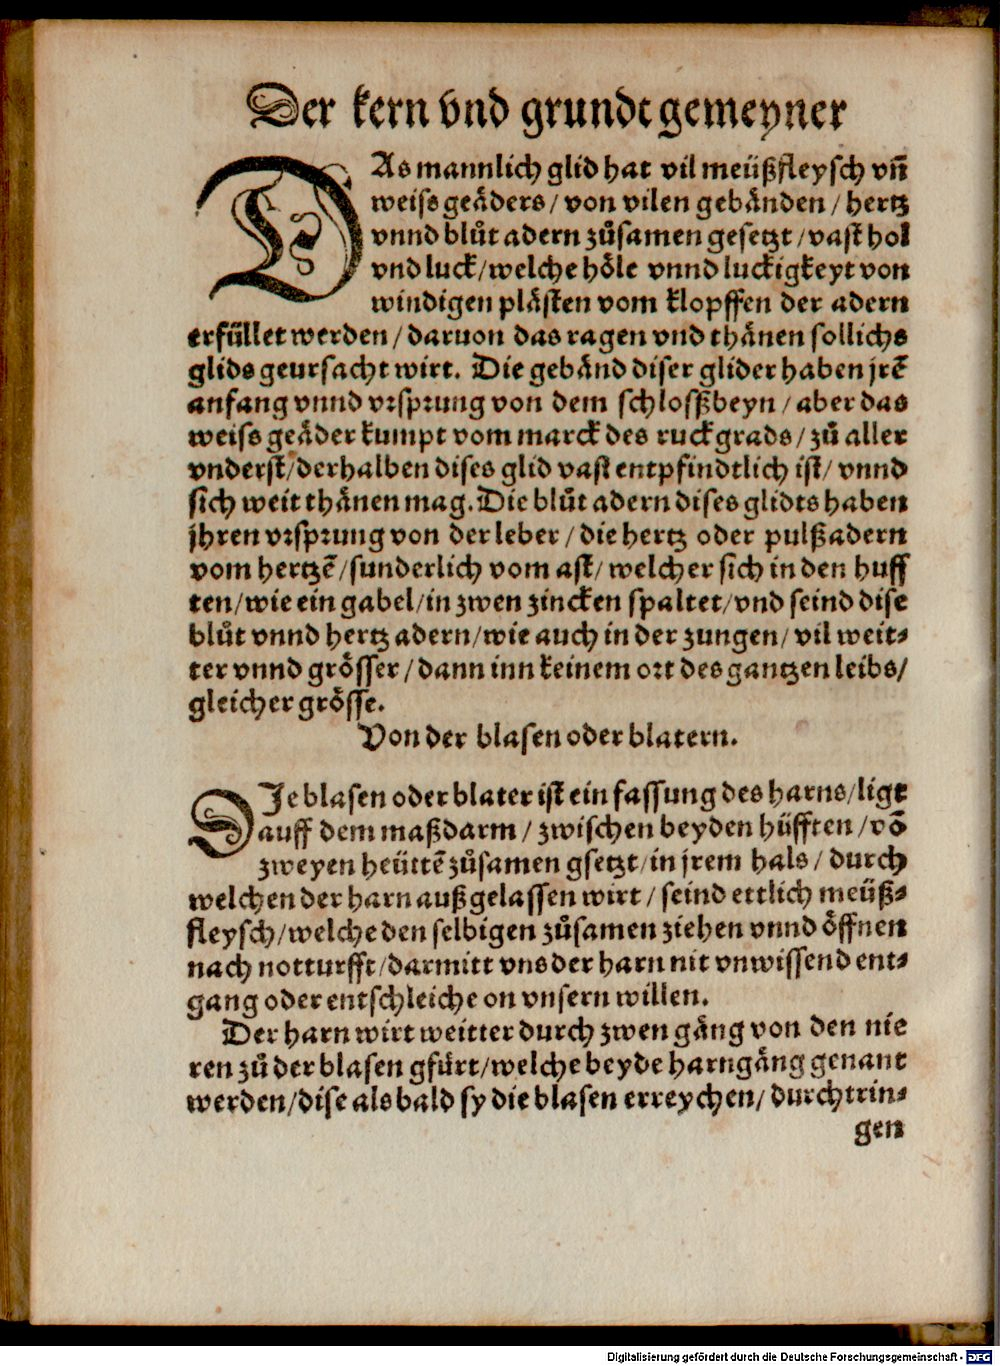 Der kern vnd grundt gemeyner
DAs mannlich glid hat vil meüßfleysch vn̄
weiss geäders / von vilen gebänden / hertz
vnnd blůt adern zůsamen gesetzt / vast hol
vnd luck / welche höle vnnd luckigkeyt von
windigen plästen vom klopffen der adern
erfüllet werden / daruon das ragen vnd thänen sollichs
glids geursacht wirt. Die gebänd diser glider haben jrē
anfang vnnd vrsprung von dem schlosßbeyn / aber das
weiss geäder kumpt vom marck des ruckgrads / zů aller
vnderst / derhalben dises glid vast entpfindtlich ist / vnnd
sich weit thänen mag. Die blůt adern dises glidts haben
jhren vrsprung von der leber / die hertz oder pulßadern
vom hertzē / sunderlich vom ast / welcher sich in den huff
ten / wie ein gabel / in zwen zincken spaltet / vnd seind dise
blůt vnnd hertz adern / wie auch in der zungen / vil weit⸗
ter vnnd grösser / dann inn keinem ort des gantzen leibs /
gleicher grösse.
Von der blasen oder blatern.
DIe blasen oder blater ist ein fassung des harns / ligt
auff dem maßdarm / zwischen beyden hüfften / vō
zweyen heüttē zůsamen gsetzt / in jrem hals / durch
welchen der harn außgelassen wirt / seind ettlich meüß⸗
fleysch / welche den selbigen zůsamen ziehen vnnd öffnen
nach notturfft / darmitt vns der harn nit vnwissend ent⸗
gang oder entschleiche on vnsern willen.
Der harn wirt weitter durch zwen gäng von den nie
ren zů der blasen gfürt / welche beyde harngäng genant
werden / dise als bald sy die blasen erreychen / durchtrin⸗
gen
Digitalisierung gefördert durch die Deutsche Forschungsgemeinschaft - DFG